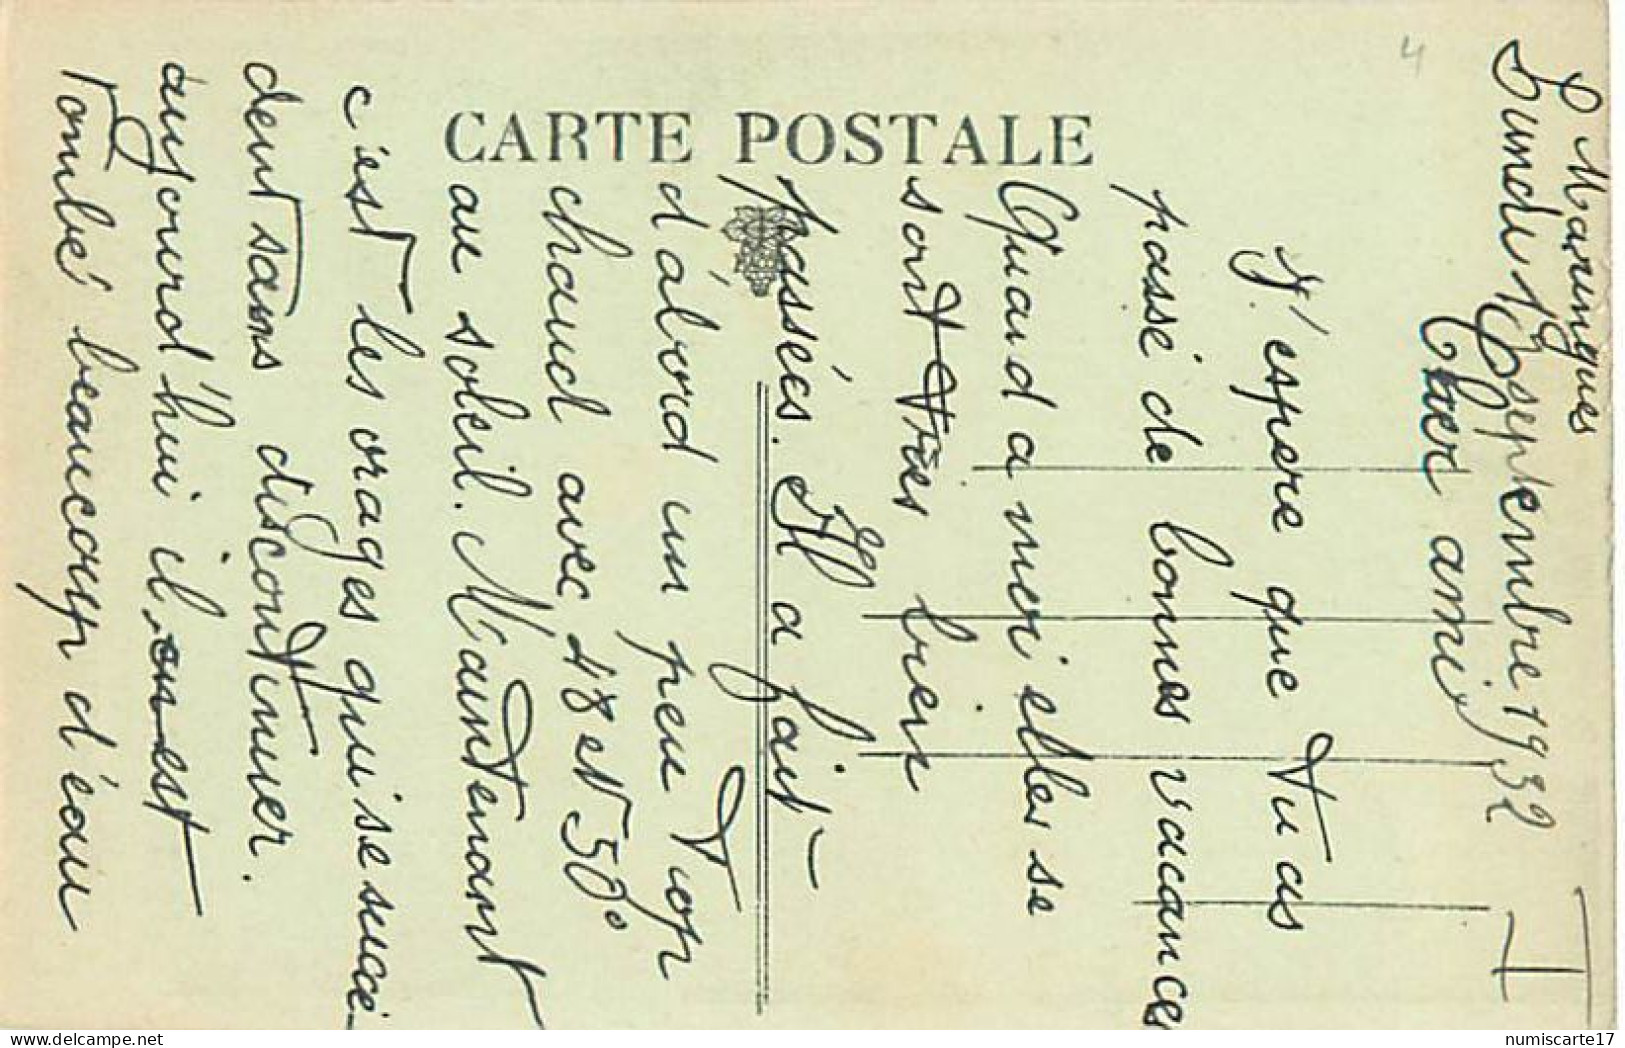 CARTE POSTALE
4
Maringues
Lundi 12 septembre 1932
I
Cher ami
J'espere que tu as
passé de bonnes vacances
Quand a moi elles se
sont très bien
passées. Il a fait
d'abord un peu trop
chaud avec 48 et 50°
au soleil. Maintenant
c'est les orages qui se succé-
dent sans discontinuer.
aujourd'hui il en est
tombé beaucoup d'eau
www.delcampe.net
numiscarte17